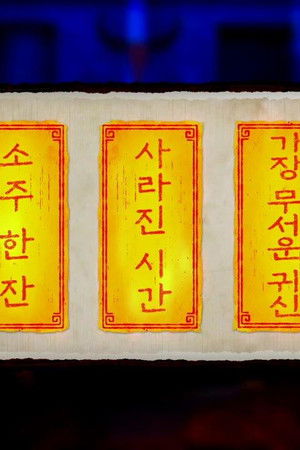 소주 한 잔
사라진 시간
가장 무서운 귀신